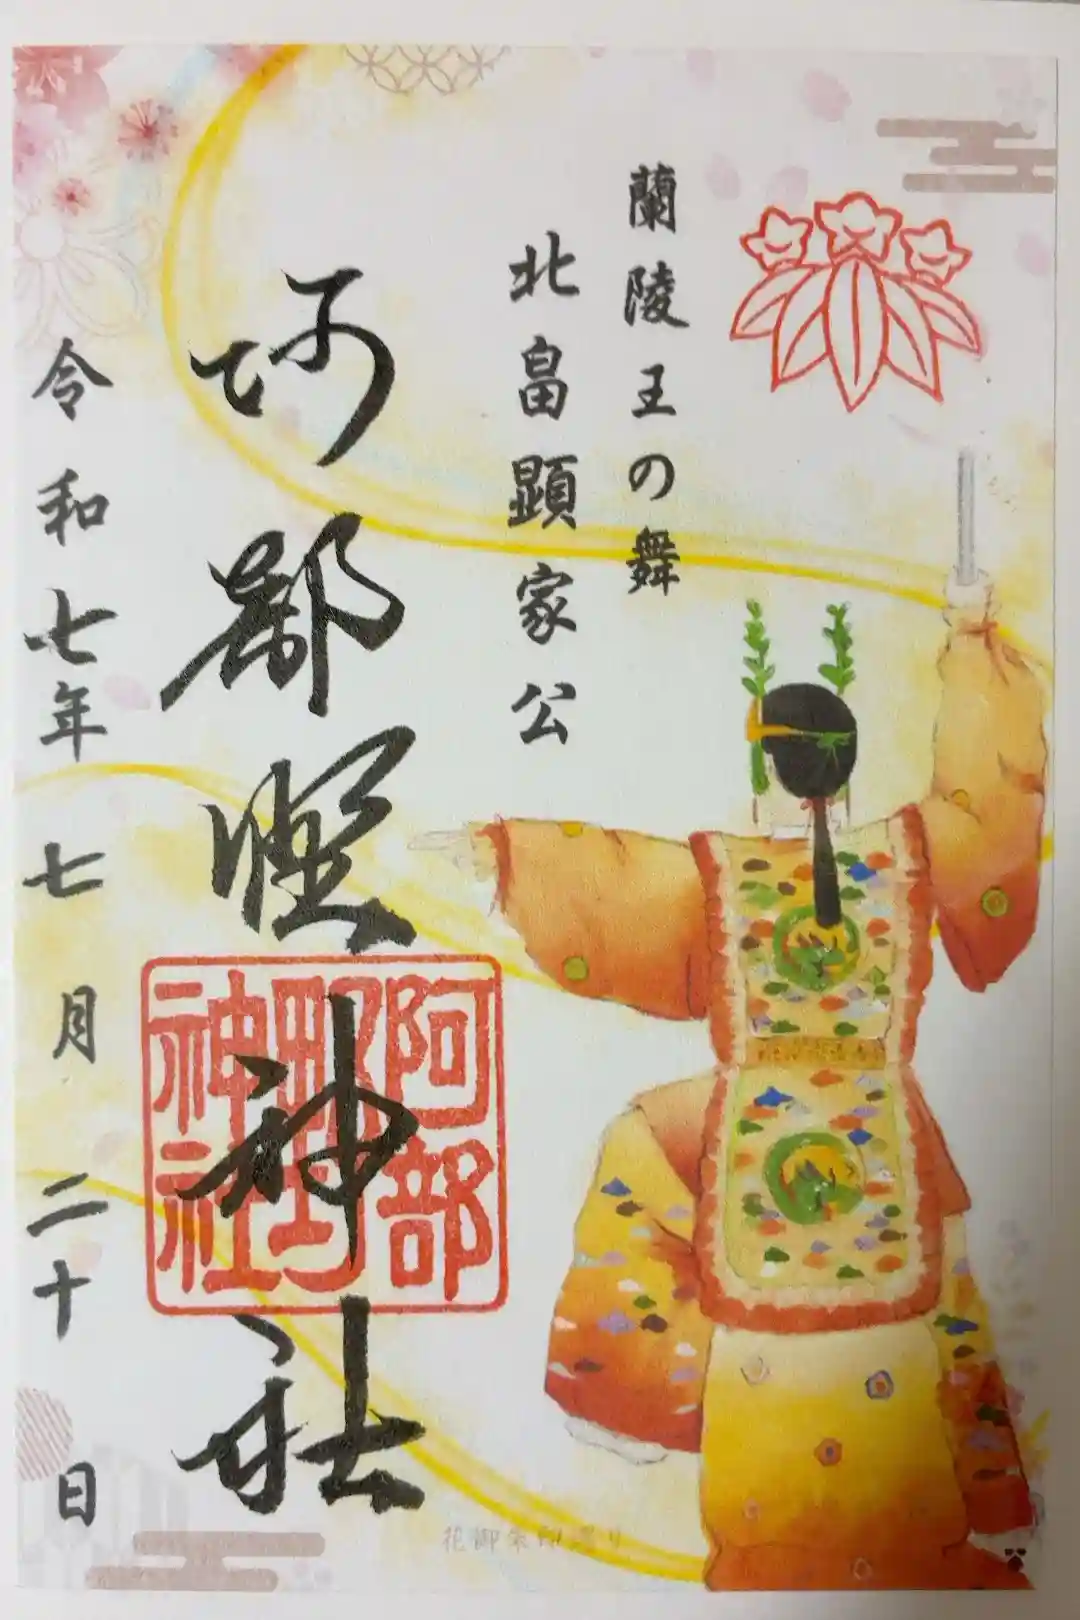 蘭陵王の舞
北畠顕家公
阿部野神社
阿部
野
神社
令和七年七月二十日
花御朱印巡り